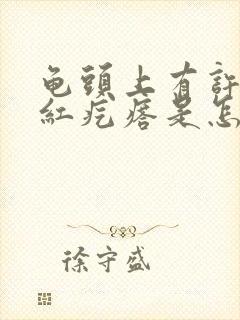 龟頭上有許
紅疙瘩是怎
徐守盛